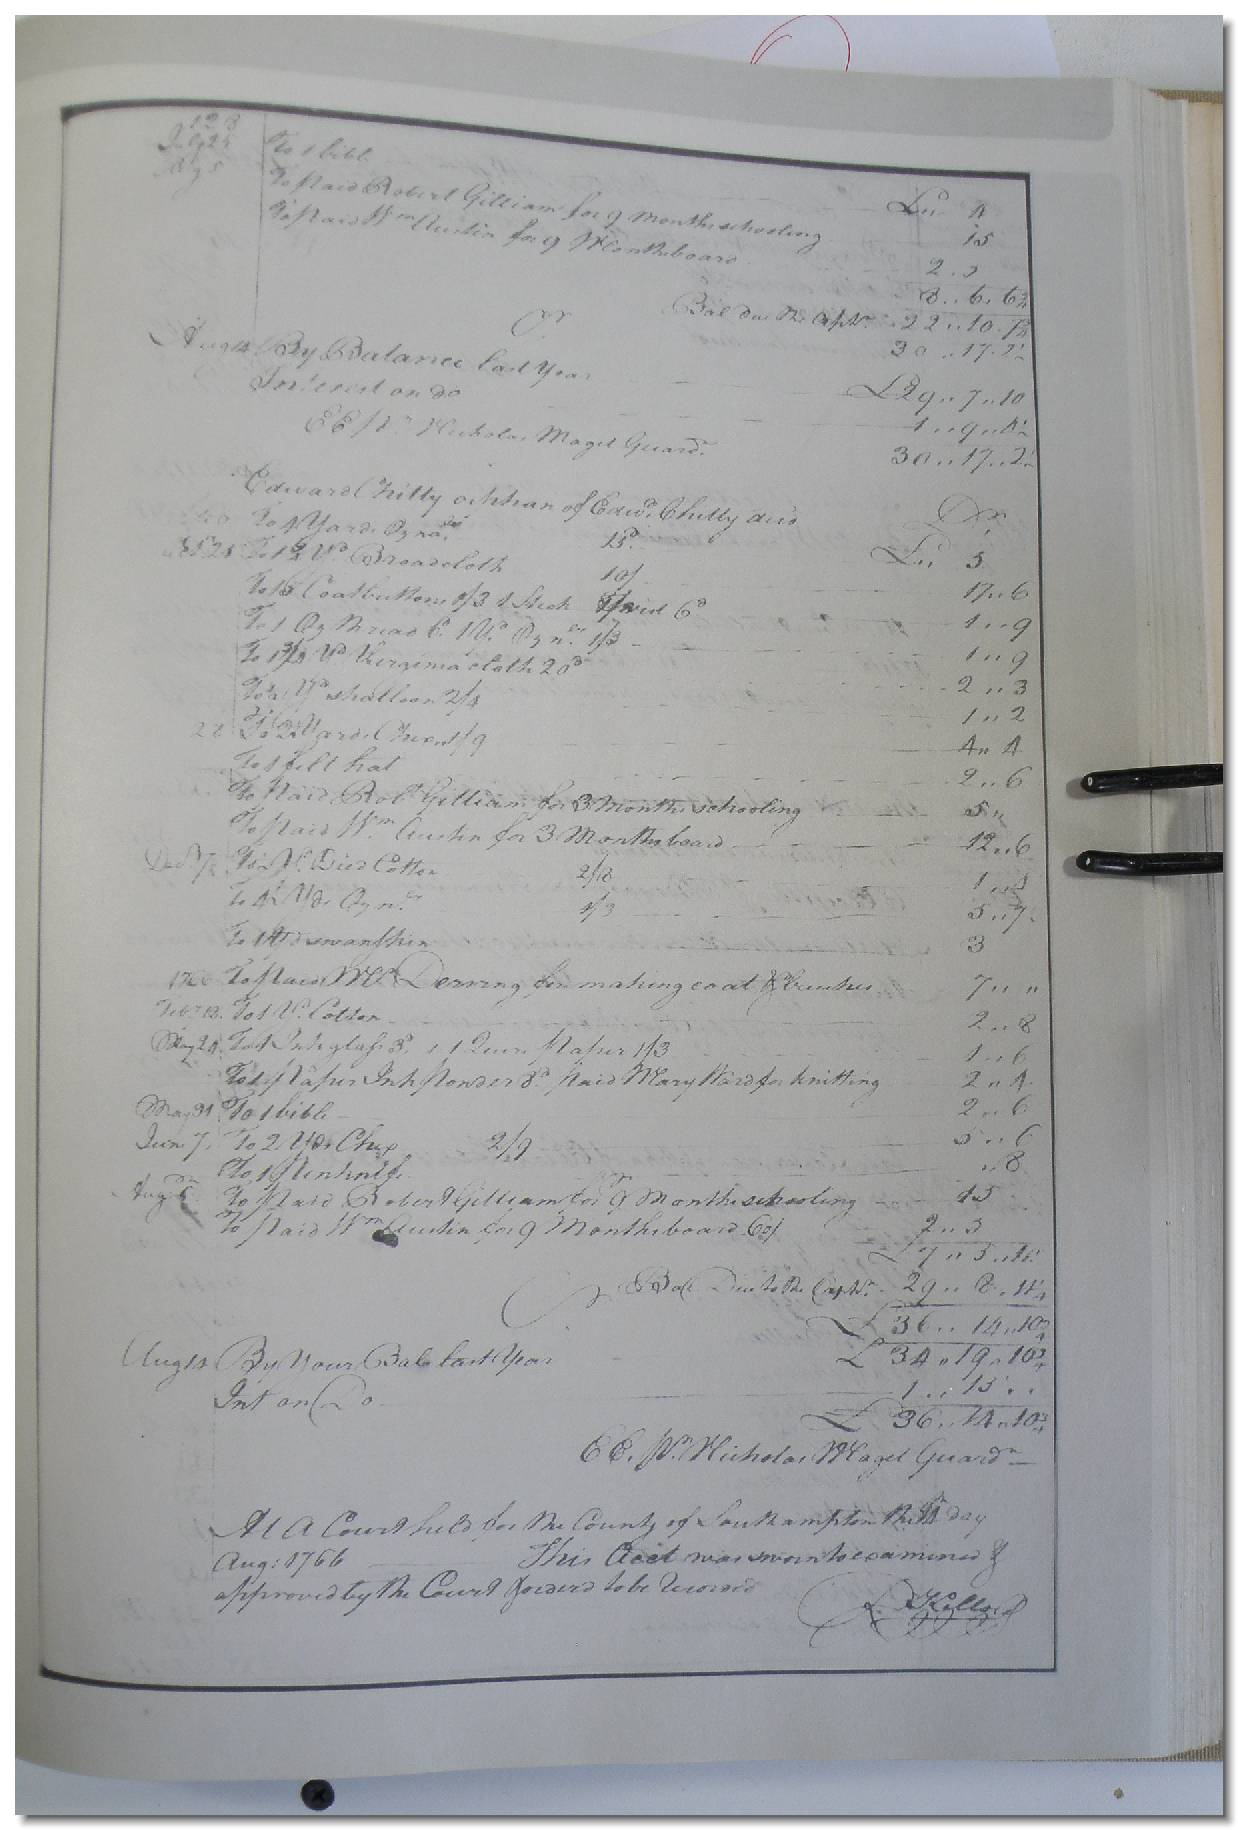 128
July 24 To 1 bible £" 4
Aug 5 To paid Robert Gilliam for 9 months schooling 15
To paid Wm Austin for 9 Months board 2 . 5
8 .. 6 . 6½
Bal due the Orphn 22 .. 10 . 7¾
Cr 30 .. 17 . 2½
Aug 14 By Balance last year £29 .. 7 .. 10
Interest on do 1 .. 9 .. 4½
EE pr Nicholas Maget Guardn 30 .. 17 .. 2½
Edward Chitty orphan of Edwd Chitty decd Dr
To 4 Yards Oznas 15d £" 5
To 1¾ Yd Broadcloth 10/ 17 .. 6
To 18 Coat buttons 1/3 1 Stick Twist 6d 1 .. 9
To 1 Oz thread 6d 1 Yd Ozns 1/3 1 .. 9
To Yd Virginia cloth 20d 2 .. 3
To ½ Yd shalloon 2/4 1 .. 2
28 To 2½ Yards Chex 1/9 4 .. 4
To 1 felt hat 2 .. 6
To paid Robt Gilliam for 3 months schooling 5 ..
To paid Wm Austin for 3 Months board 12 .. 6
Decr 7 To ½ Yd Died Cotton 2/8 1 .. 4
To 4½ Yds Ozns 1/3 5 .. 7
To 1 Yd swanskin 3
1766 To paid Mr Derring for making coat & breeches 7 .. "
Febr 18 To 1 Yd Cotton 2 .. 8
May 24 To 1 Ink glass 3d, 1 Quire paper 1/3 1 .. 6
To 1 paper Ink powder 8d paid Mary Ward for knitting 2 .. 4
May 31 To 1 bible 2 .. 6
June 7 To 2 Yds Chex 2/9 5 .. 6
To 1 penknife .. 8
Aug 5 To paid Robert Gilliam for 9 Months schooling 15
To paid Wm Austin for 9 Months board 60/ 2 .. 5
£ 7 .. 5 .. 11½
Bal Due to the Orphn 29 .. 8 . 11¼
Cr £ 36 .. 14 .. 10¾
Aug 14 By Your Bale last Year £ 34 .. 19 .. 10¾
Int on Do 1 .. 15 ..
£ 36 .. 14 .. 10¾
EE. Pr. Nicholas Maget Guardn
At A Court held for the County of Southampton the 14 day
Aug: 1766 This Acct was sworn to examined &
approved by the Court & ordered to be Recorded
R. Kello